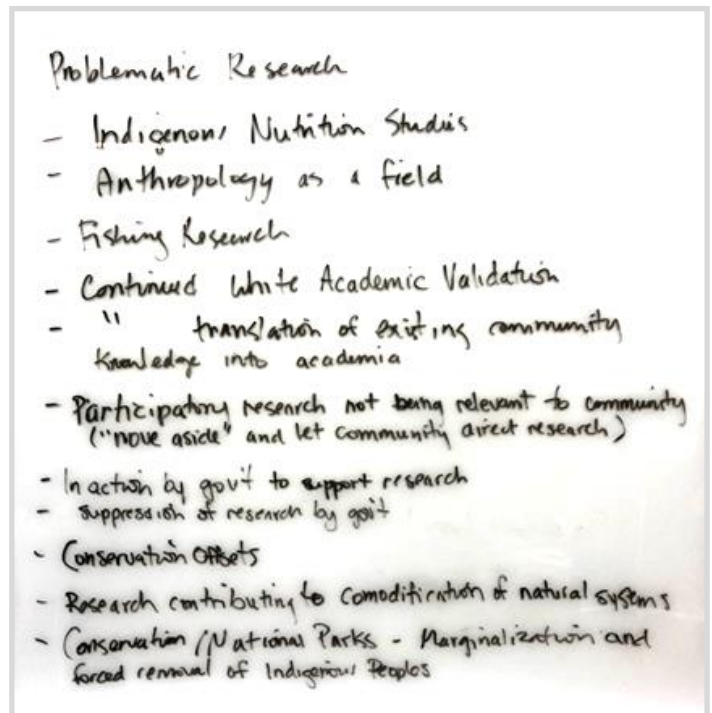 Problematic Research
- Indigenous Nutrition Studies
- Anthropology as a field
- Fishing Research
- Continued White Academic Validation
- " translation of existing community
knowledge into academia
- Participatory research not being relevant to community
("move aside" and let community direct research)
- In action by gov't to support research
- suppression of research by gov't
- Conservation Offsets
- Research contributing to comodification of natural systems
- Conservation/National Parks - Marginalization and
forced removal of Indigenous Peoples